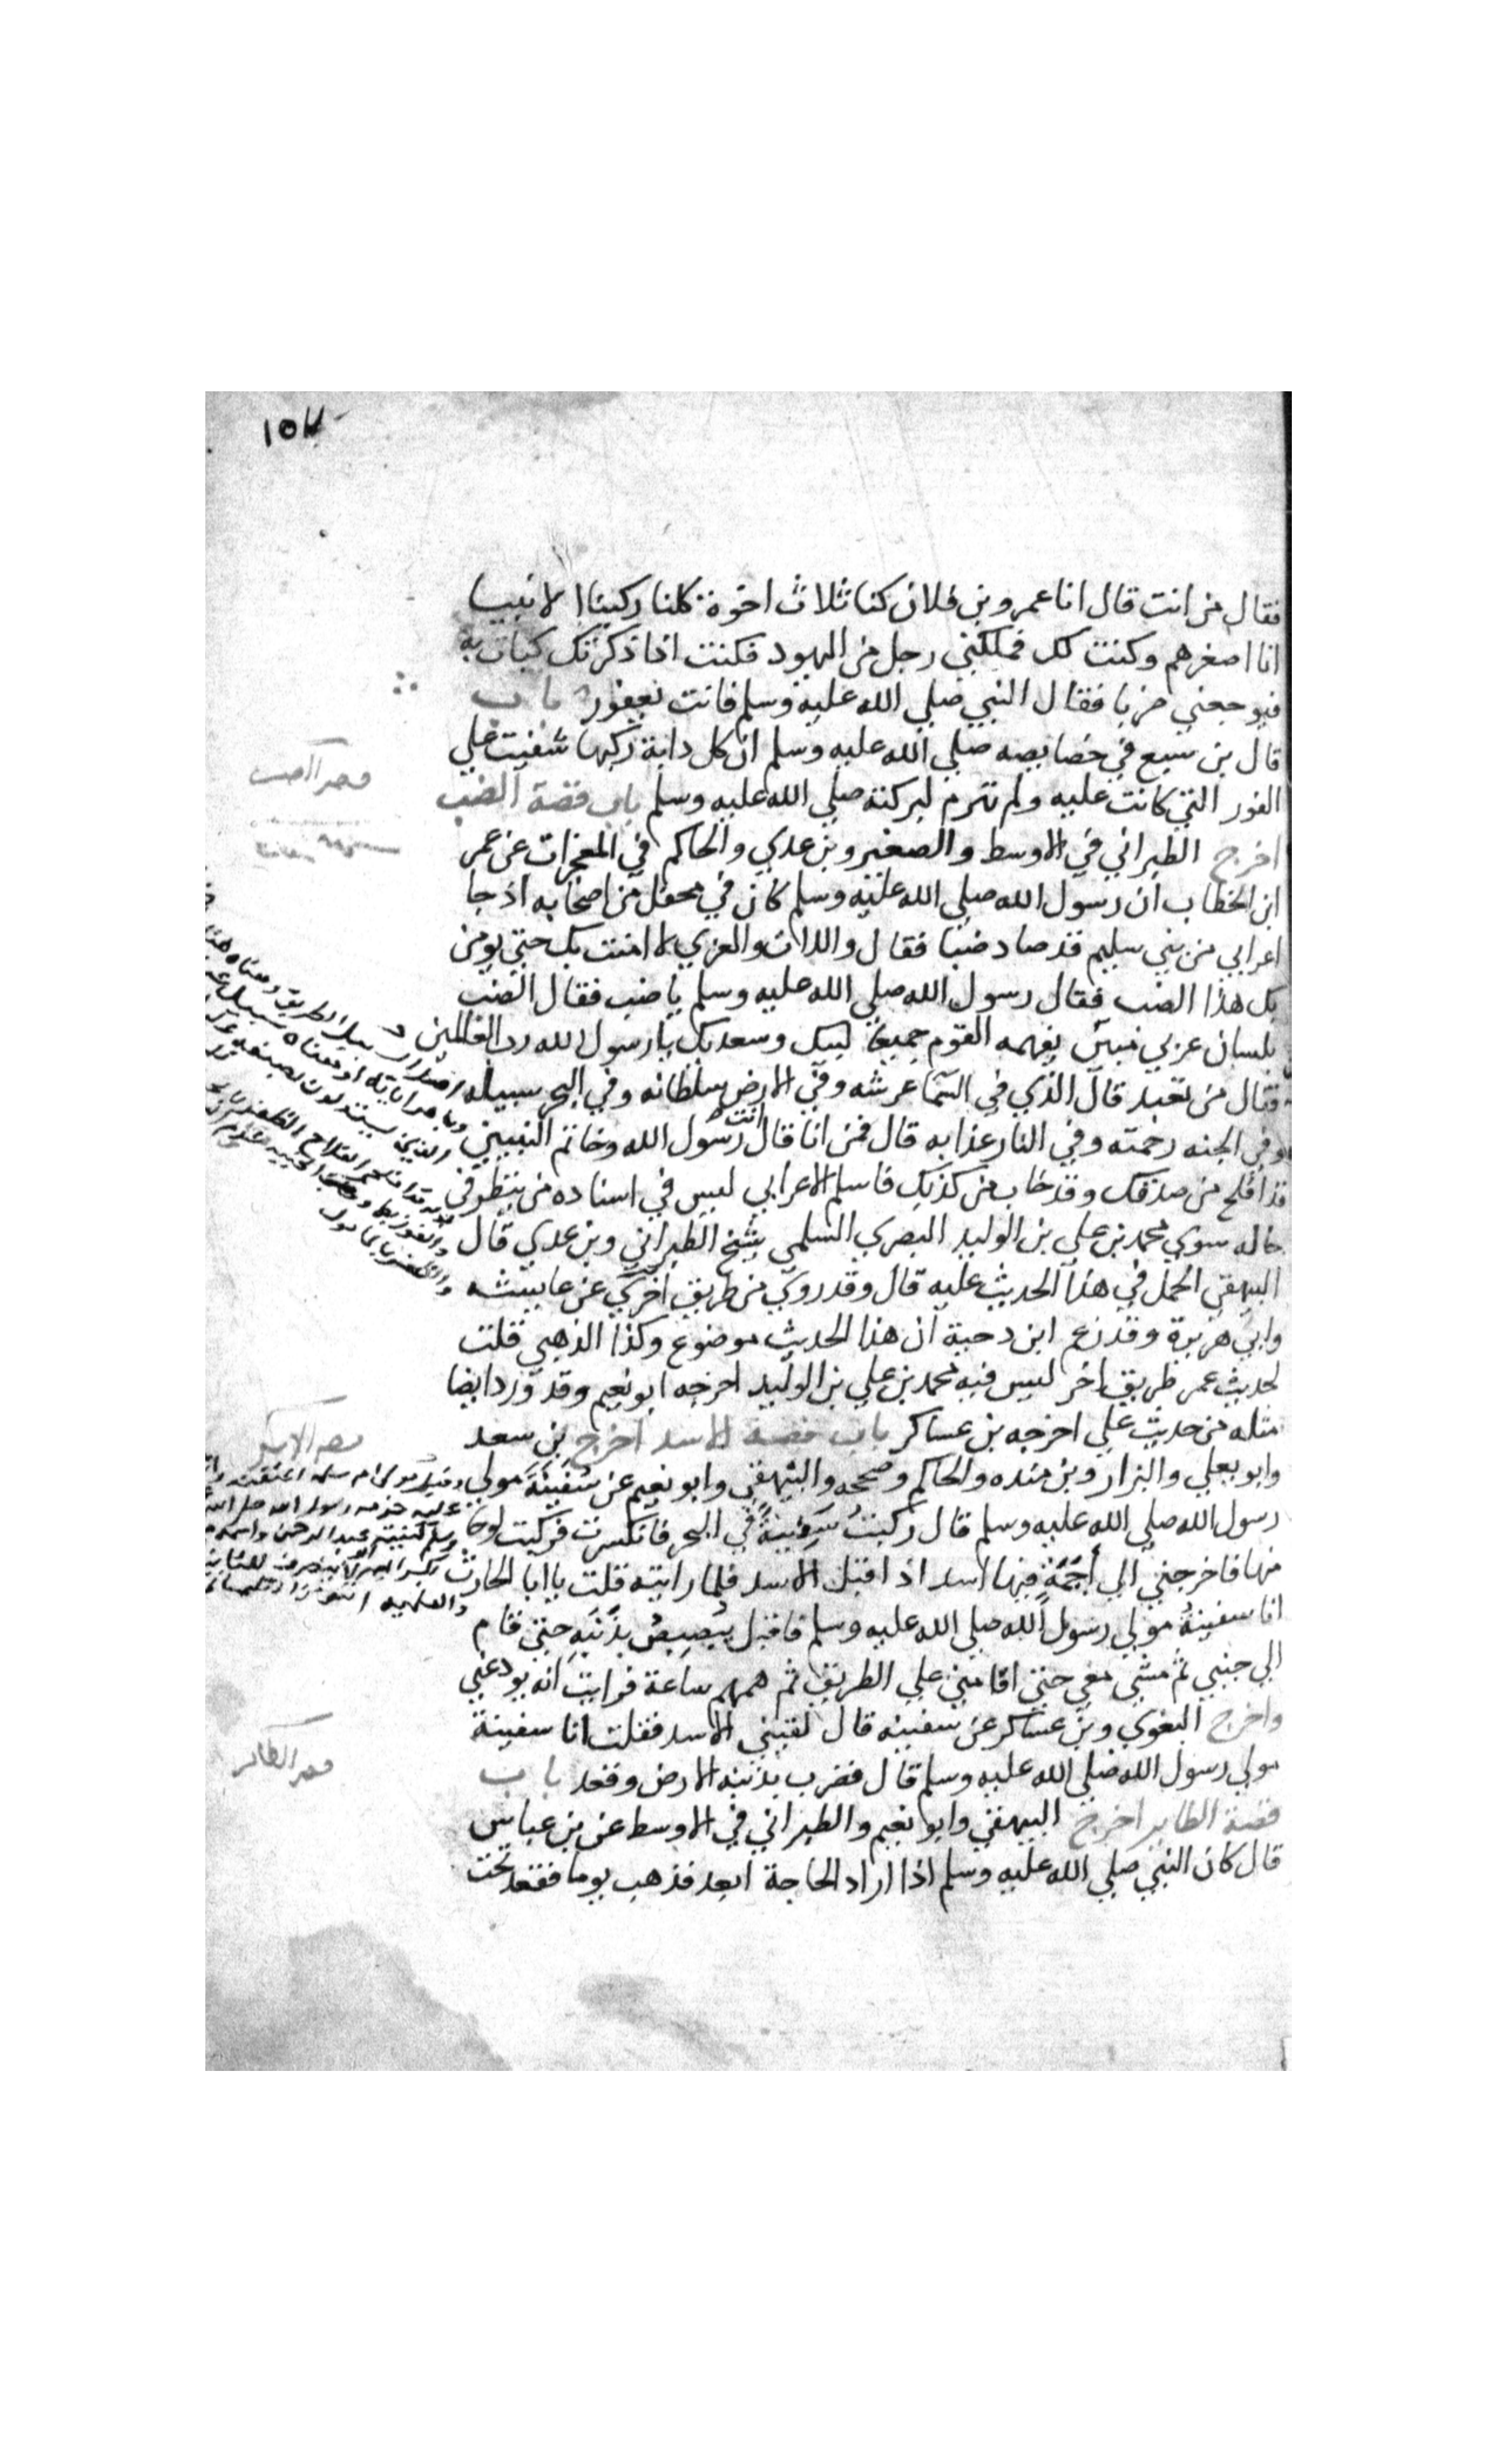 ١٥٧
فقال من انت قال انا عمرو بن فلان كنا ثلاث اخوة كلنا ركبنا الانبيا
انا اصغرهم وكنت لك فملكني رجل من اليهود فكنت اذا ذكرتك كبات به
فيوجعني ضربا فقال النبي صلي الله عليه وسلم فانت يعفور باب
قال بن سبع في خصايصه صلي الله عليه وسلم ان كل دابة ركبها شفيت علي
الفور التي كانت عليه ولم تهرم لبركته صلي الله عليه وسلم باب قصة الضب
اخرج الطبراني في الاوسط والصغير وبن عدي والحاكم في المعجزات عن عمر
ابن الخطاب ان رسول الله صلي الله عليه وسلم كان في محفل من اصحابه اذ جا
اعرابي من بني سليم قد صاد ضبا فقال واللات والعزي لا امنت بك حتي يومن
بك هذا الضب فقال رسول الله صلي الله عليه وسلم يا ضب فقال الضب
بلسان عربي مبين يفهمه القوم جميعا لبيك وسعديك يا رسول لله رب العالمين
فقال من تعبد قال الذي في السما عرشه وفي الارض سلطانه وفي البحر سبيله
وفي الجنه رحمته وفي النار عذابه قال فمن انا قال انت رسول الله وخاتم النبيين
قد افلح من صدقك وقد خاب من كذبك فاسلم الاعرابي ليس في اسناده من ينظر في
حاله سوي محمد بن علي بن الوليد البصري السلمي شيخ الطبراني وبن عدي قال
البيهقي الحمل في هذا الحديث عليه قال وقد روي من طريق اخري عن عاييشه
وابي هريرة وقد زعم ابن دحية ان هذا الحديث موضوع وكذا الذهبي قلت
لحديث عمر طريق اخر ليس فيه محمد بن علي بن الوليد اخرجه ابو نعيم وقد ورد ايضا
مثله من حديث علي اخرجه بن عساكر باب قصة الاسد اخرج بن سعد
وابو يعلي والبزار وبن منده والحاكم وصححه والبيهقي وابو نعيم عن سَفِينَةَ مولي
رسول الله صلي الله عليه وسلم قال ركبتُ سَفِينةً في البحر فانكسرت فركبت لوحا
منها فاخرجني الي أَجَمَةٍ فيها اسد اذ اقبل الاسد فلما رايته قلت يا ابا الحارث
انا سفينةُ مولي رسول الله صلي الله عليه وسلم فاقبل يُبَصبِصُ بِذَنَبِه حتي قام
الي جنبي ثم مشي معي حتي اقامني علي الطريق ثم همهم ساعة فرايت انه يودعني
واخرج البغوي وبن عساكر عن سفينه قال لقيني الاسد فقلت انا سفينة
مولي رسول الله صلي الله عليه وسلم قال فضرب بذنبه الارض وقعد باب
قصة الطاير اخرج البيهقي وابو نعيم والطبراني في الاوسط عن بن عباس
قال كان النبي صلي الله عليه وسلم اذا اراد الحاجة ابعد فذهب يوما فقعد تحت
قصة الضب
قصة الاسد
قصة الطاير